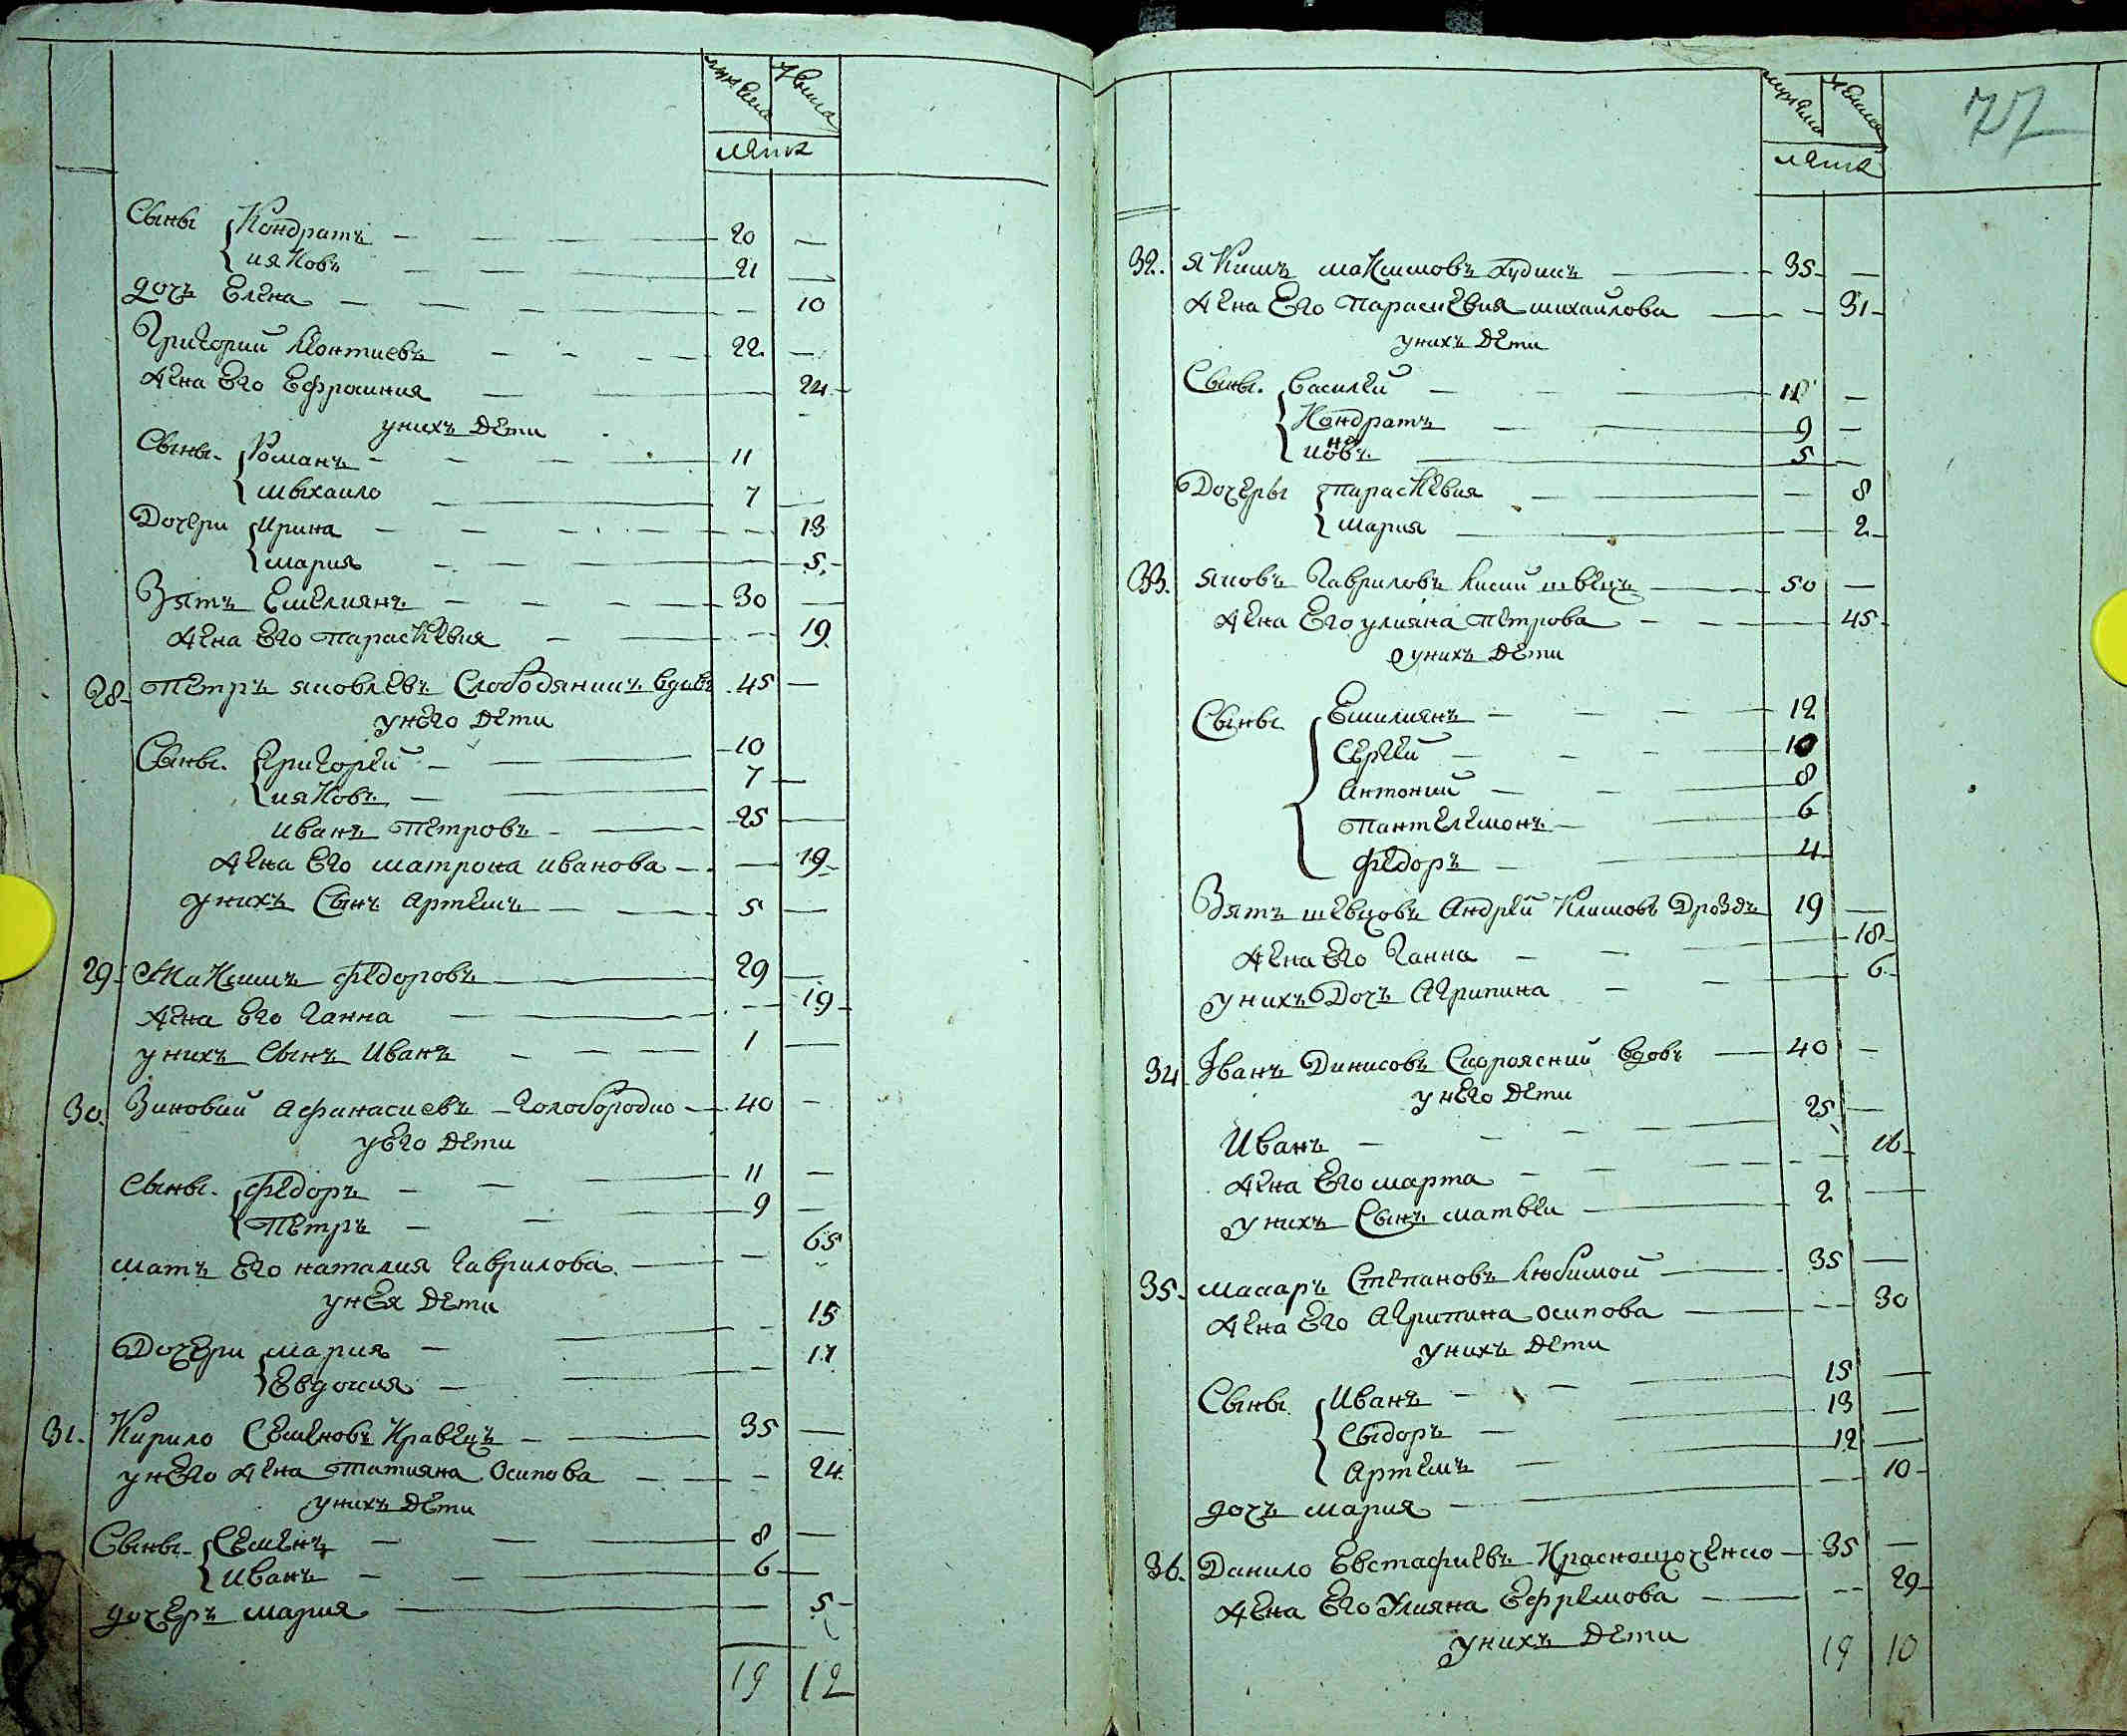 мужеска женска
лета
Сыны Кондратъ 20
ияковъ 21
дочъ Елена 10
Григорий Леонтиевъ 22
жена Его Ефросиния 24
унихъ дети
Сыны Романъ 11
мыхаило 7
Дочери Ирина 13
мария 5
Зятъ Емелиянъ 30
жена Его параскевия 19
28 Петръ яковлевъ Слободяникъ вдовъ 45
унего дети
Сыны Григорей 10
ияковъ 7
иванъ Петровъ 25
жена Его матрона иванова 19
унихъ Сынъ Артемъ 5
29 Максимъ Федоровъ 29
жена Его Ганна 19
унихъ Сынъ Иванъ 1
30 Зиновий Афанасиевъ Голобородко 40
уего дети
Сыны Федоръ 11
Петръ 9
матъ Его наталия Гаврилова 65
унея дети
Дочери мария 15
Евдокия 11
31 Кирило Семеновъ Кравецъ 35
унего жена Татияна Осипова 24
унихъ дети
Сыны Семенъ 8
Иванъ 6
дочеръ мария 5
19 12
мужеска женска
лета
77
32 якимъ максимовъ Гудимъ 35
жена Его параскевия михаилова 31
унихъ дети
Сыны Василей 11
Кондратъ 9
ияковъ 5
Дочеры параскевия 8
мария 2
33 яковъ Гавриловъ Лисий швецъ 50
жена Его улияна Петрова 45
унихъ дети
Сыны Емилиянъ 12
Сергей 10
Антоний 8
Пантелемонъ 6
Федоръ 4
Зятъ шевцовъ Андрей Климовъ Дроздъ 19
жена Его Ганна 18
унихъ Дочъ Агрипина 6
34 Iванъ Динисовъ Скороясний вдовъ 40
унего дети
Иванъ 25
жена Его марта 16
унихъ Сынъ матвеи 2
35 макаръ Степановъ Любимой 35
жена Его Агрипина осипова 30
унихъ дети
Сыны Иванъ 15
Сыдоръ 13
Артемъ 12
дочъ мария 10
36 Данило Евстафиевъ Краснощоченко 35
жена Его Улияна Ефремова 29
унихъ дети
19 10